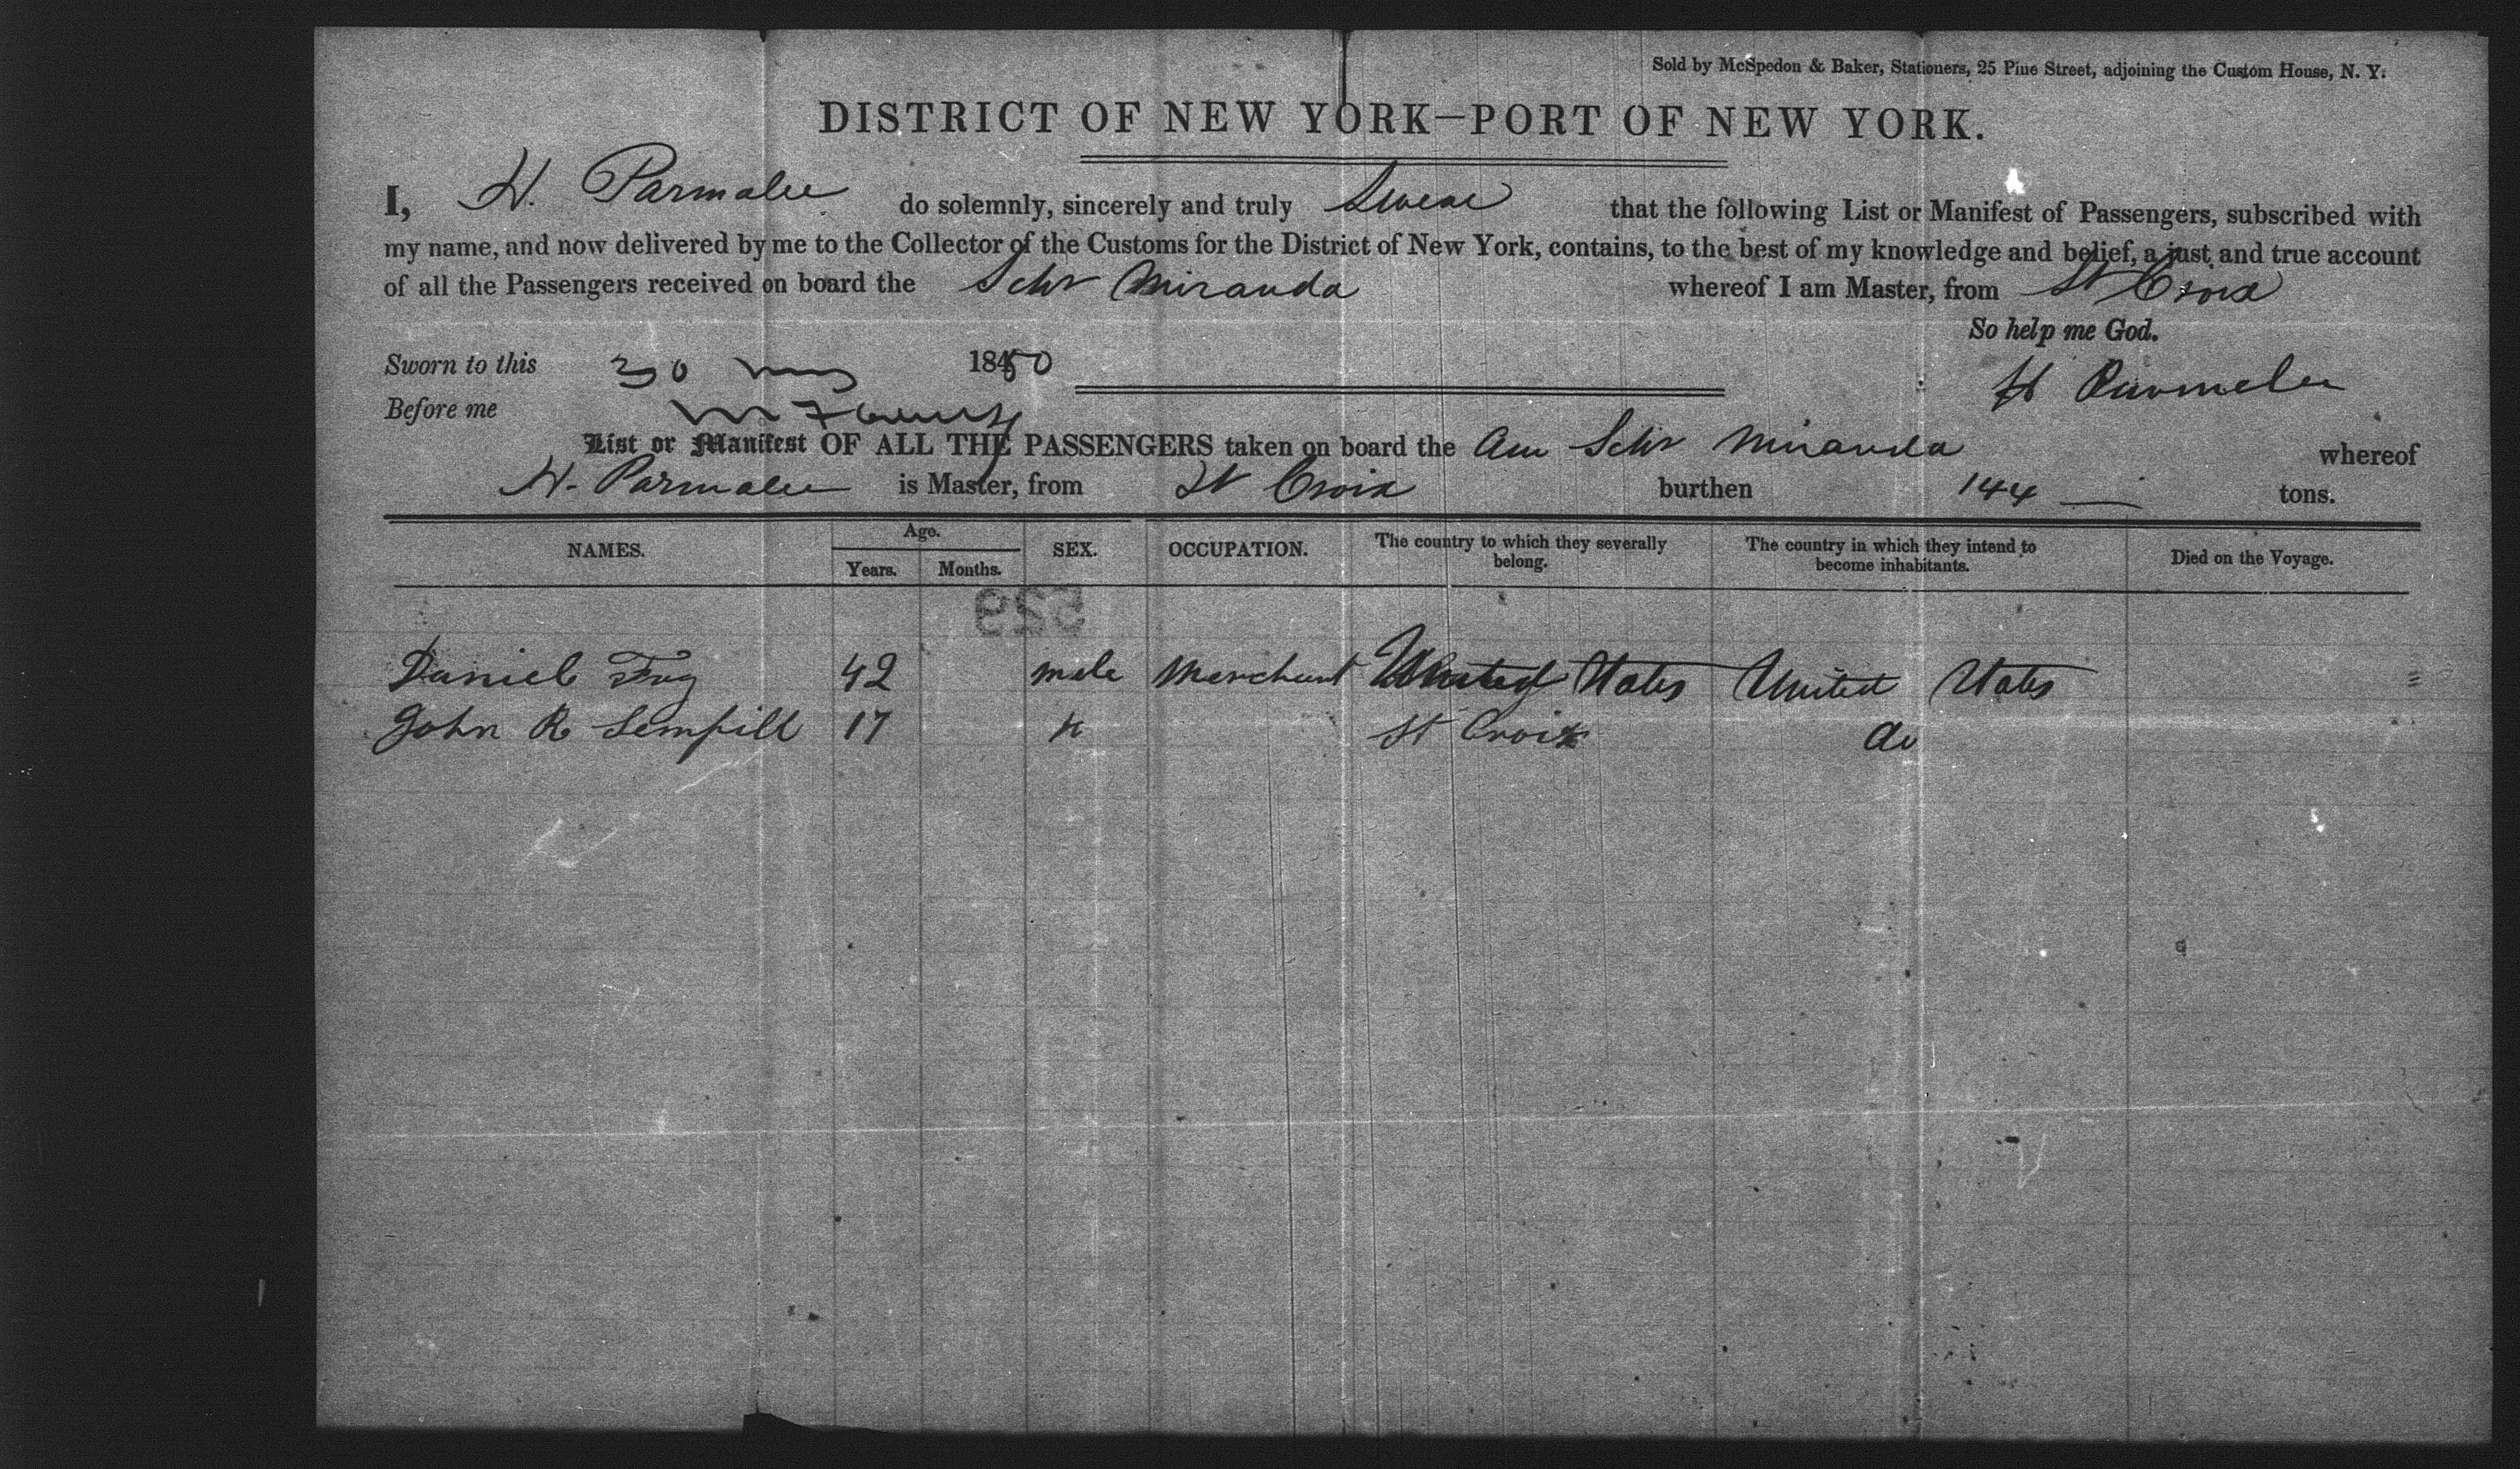 Sold by McSpedon & Baker, Stationers, 25 Pine Street, adjoining the Custom House, N. Y.
DISTRICT OF NEW YORK—PORT OF NEW YORK.
I, H. Parmalee do solemnly, sincerely and truly Swear that the following List or Manifest of Passengers, subscribed with
my name, and now delivered by me to the Collector of the Customs for the District of New York, contains, to the best of my knowledge and belief, a just and true account
of all the Passengers received on board the Schr Miranda whereof I am Master, from St Croix
So help me God.
Sworn to this 30 1850
H Parmelee
Before me
List or Manifest OF ALL THE PASSENGERS taken on board the Am Schr Miranda whereof
H. Parmalee is Master, from St Croix burthen 144 — tons.
NAMES. Age. SEX. OCCUPATION. The country to which they severally belong. The country in which they intend to become inhabitants. Died on the Voyage.
Years. Months.
529
Daniel 42 male Merchant United States United States
John R Sempill 17 St Croix do